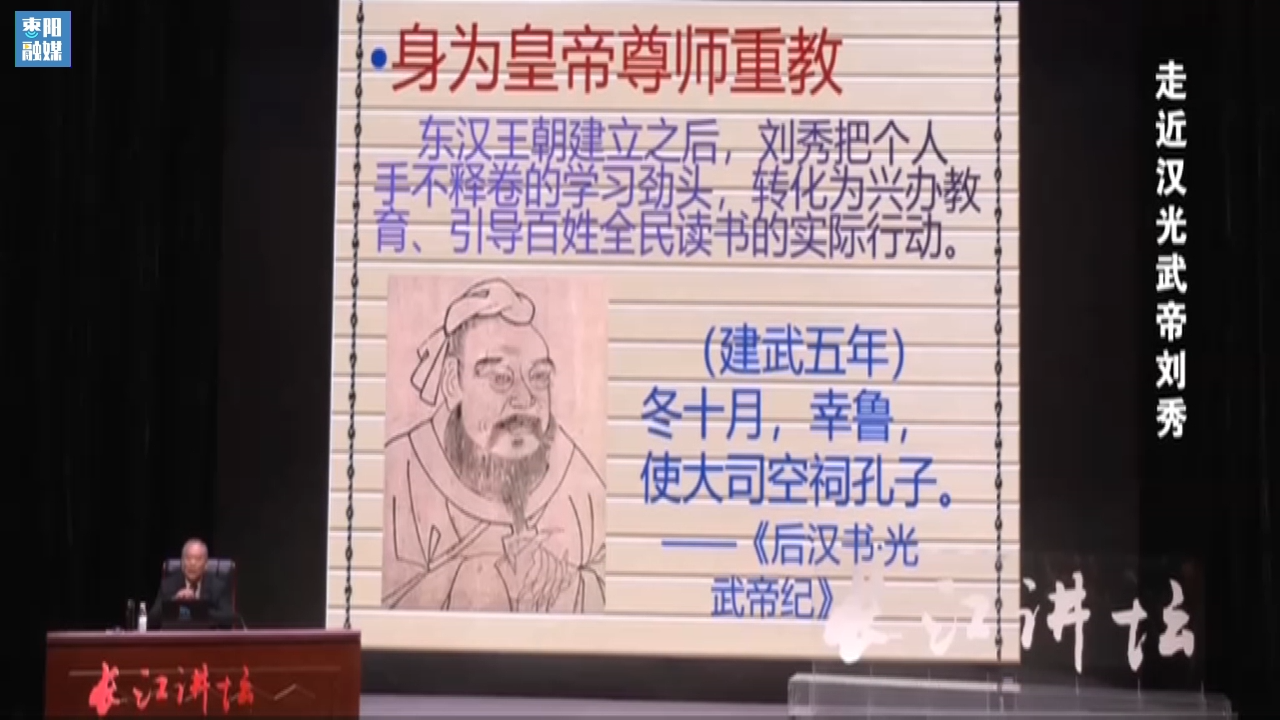 枣阳
融媒
•身为皇帝尊师重教
东汉王朝建立之后，刘秀把个人
手不释卷的学习劲头，转化为兴办教
育、引导百姓全民读书的实际行动。
（建武五年）
冬十月，幸鲁，
使大司空祠孔子。
——《后汉书·光
武帝纪》
走近汉光武帝刘秀
长江讲坛
长江讲坛